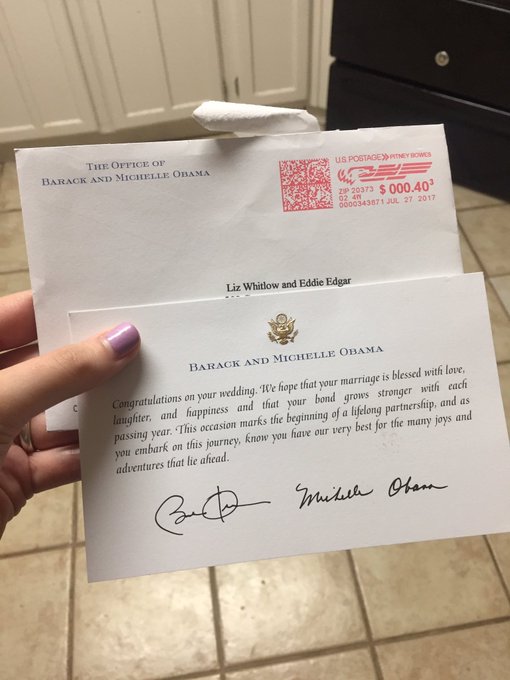 THE OFFICE OF
BARACK AND MICHELLE OBAMA
U.S. POSTAGE PITNEY BOWES
ZIP 20373 $ 000.40³
02 4W
0000343671 JUL 27 2017
Liz Whitlow and Eddie Edgar
BARACK AND MICHELLE OBAMA
Congratulations on your wedding. We hope that your marriage is blessed with love,
laughter, and happiness and that your bond grows stronger with each
passing year. This occasion marks the beginning of a lifelong partnership, and as
you embark on this journey, know you have our very best for the many joys and
adventures that lie ahead.
Michelle Obama